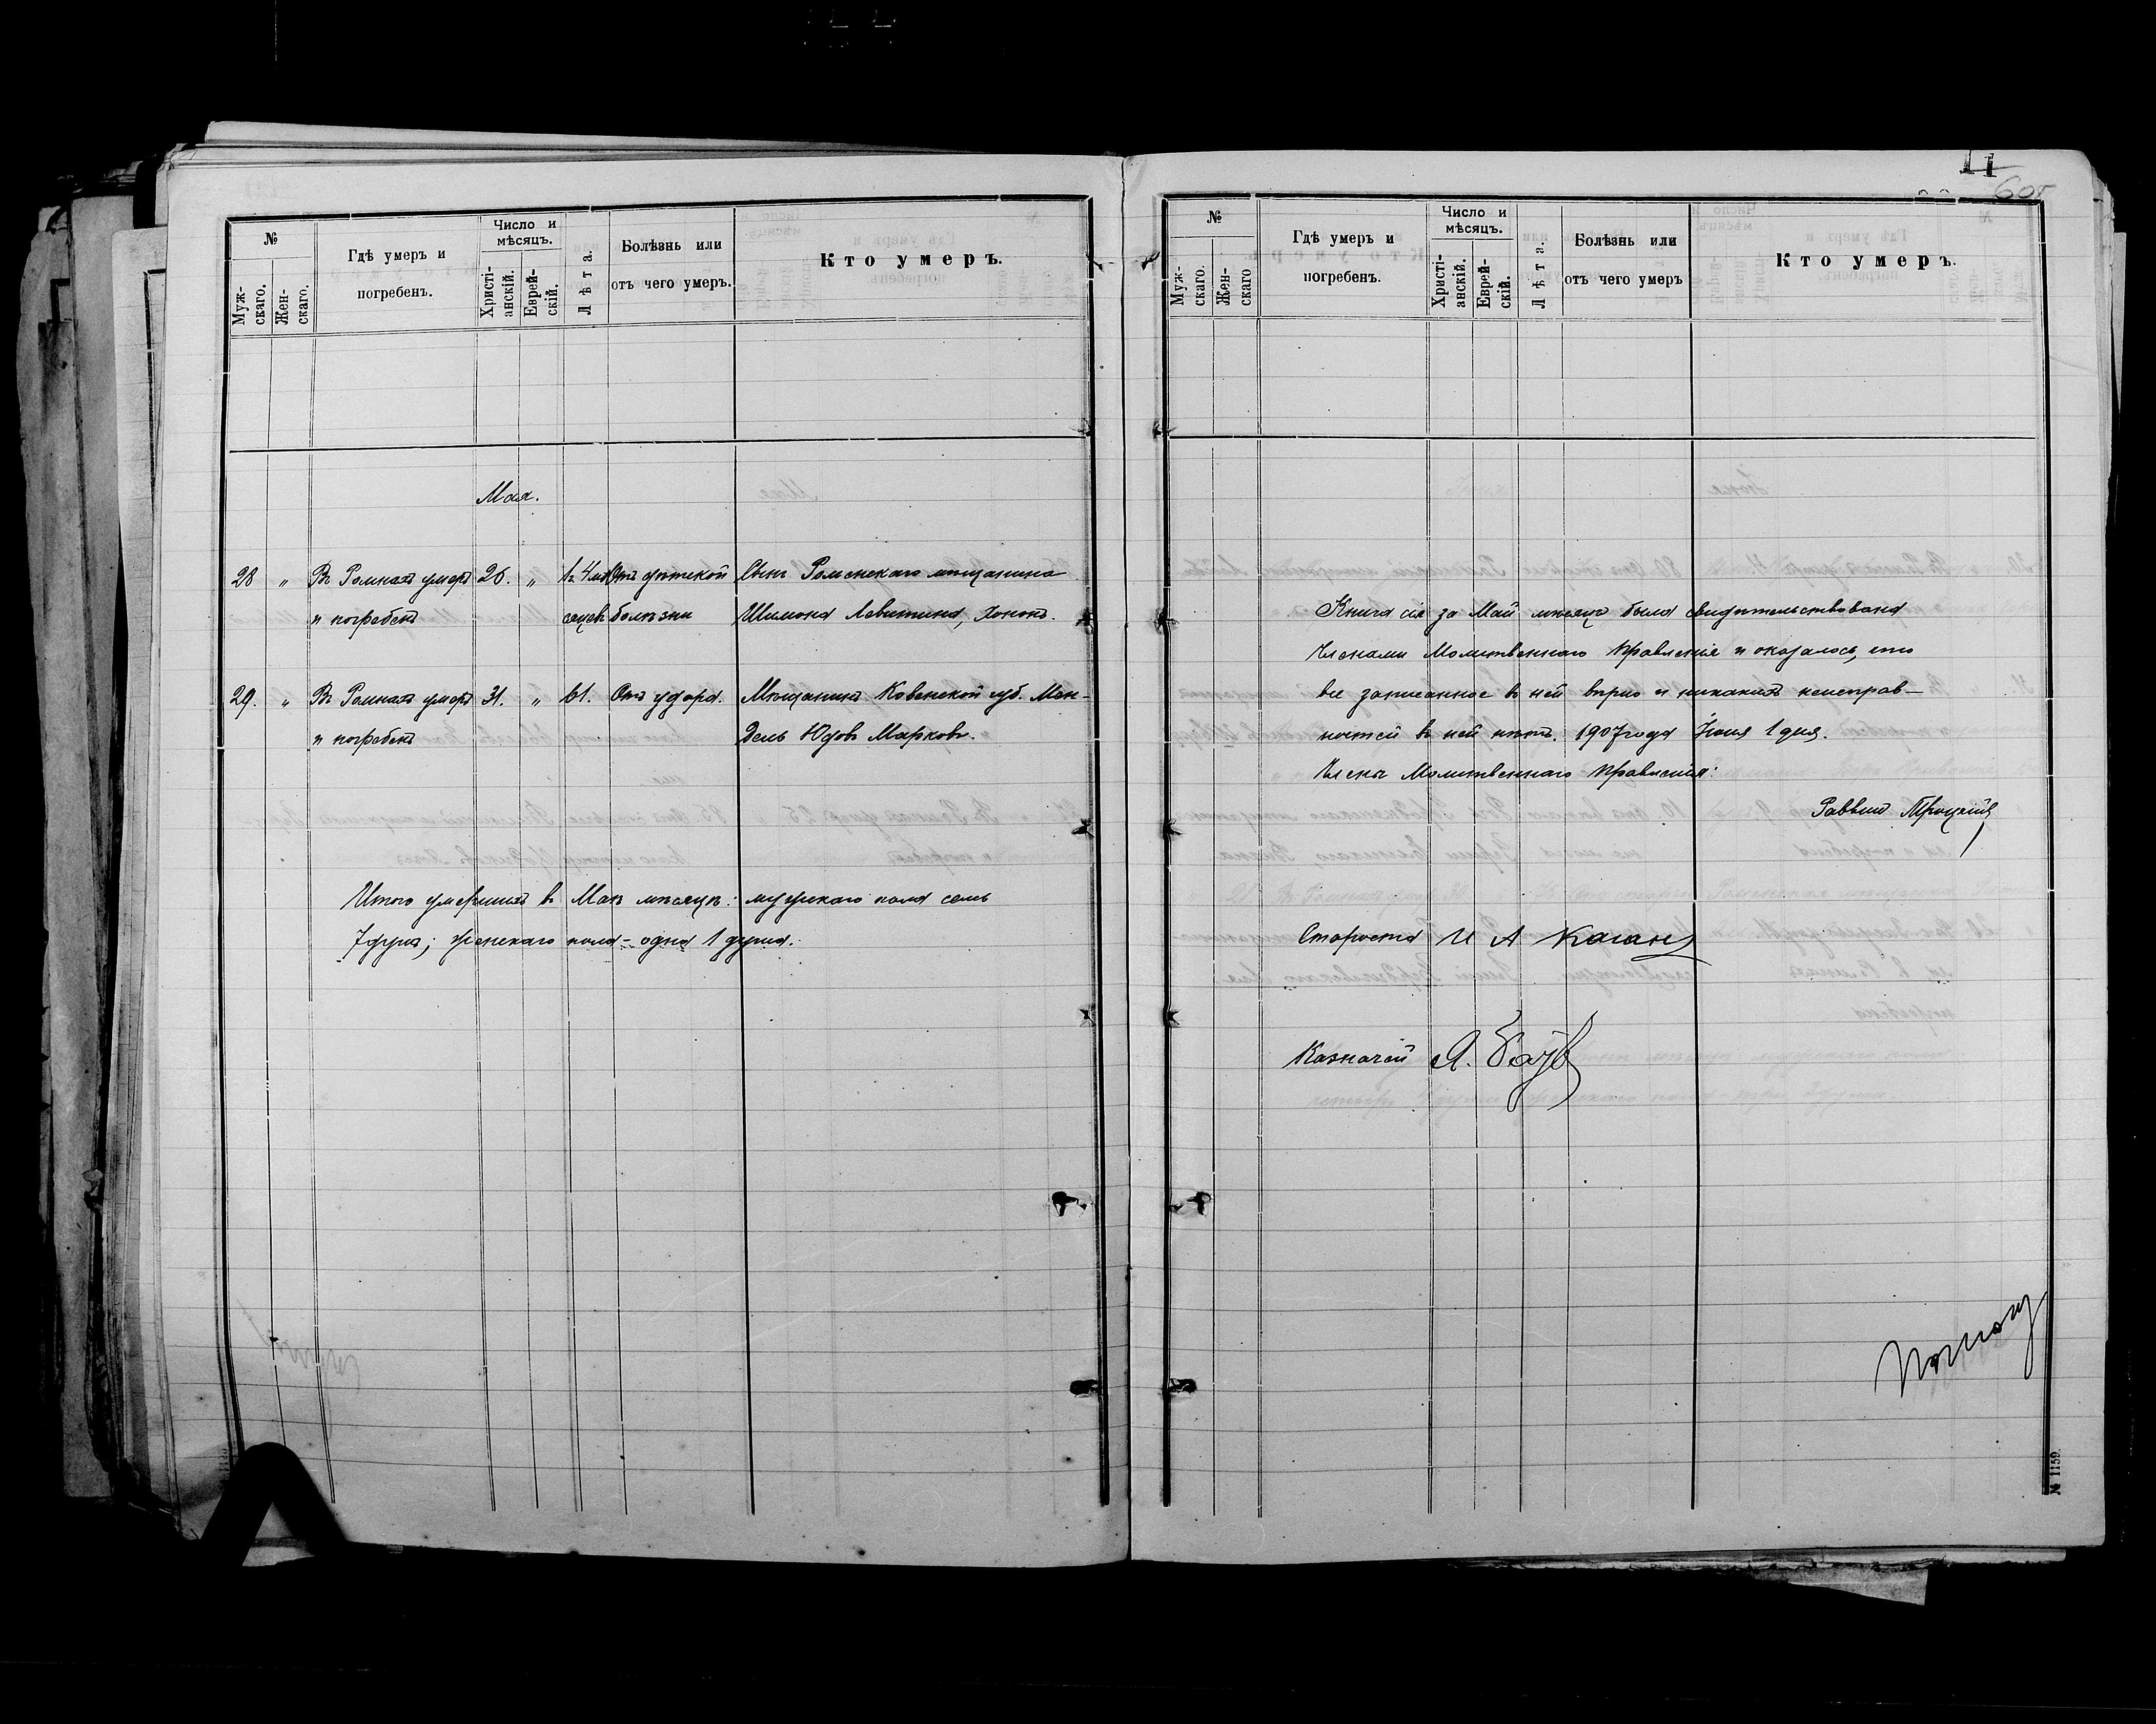 №
Муж-
скаго.
Жен-
скаго.
Гдѣ умеръ и
погребенъ.
Число и
мѣсяцъ.
Христі-
анскій.
Еврей-
скій.
Лѣта.
Болѣзнь или
отъ чего умеръ.
Кто умеръ.
Мая.
28 „ Въ Ромнахъ умеръ 26. „ 1 г. 4 мѣ Отъ дѣтской Сынъ Роменскаго мѣщанина
и погребенъ сяцевъ болѣзни Шимона Левитина, Хононъ.
29. „ Въ Ромнахъ умеръ 31. „ 61. Отъ удара. Мѣщанинъ Ковенской губ. Мен-
и погребенъ дель Юдовъ Марковъ.
Итого умершихъ въ Маѣ мѣсяцѣ: мужскаго пола семь
7 душъ; женскаго пола - одна 1 душа.
60
№
Муж-
скаго.
Жен-
скаго
Гдѣ умеръ и
погребенъ.
Число и
мѣсяцъ.
Христі-
анскій.
Еврей-
скій.
Лѣта.
Болѣзнь или
отъ чего умеръ
Кто умеръ.
Книга сія за Май мѣсяцъ была свидѣтельствована
Членами Молитвеннаго Правленія и оказалось, что
все записанное въ ней вѣрно и никакихъ неисправ-
ностей въ ней нѣтъ. 1907 года Іюня 1 дня.
Члены Молитвеннаго Правленія:
Раввинъ Троцкій
Староста И А Каган
Казначей Я.
№ 1159.